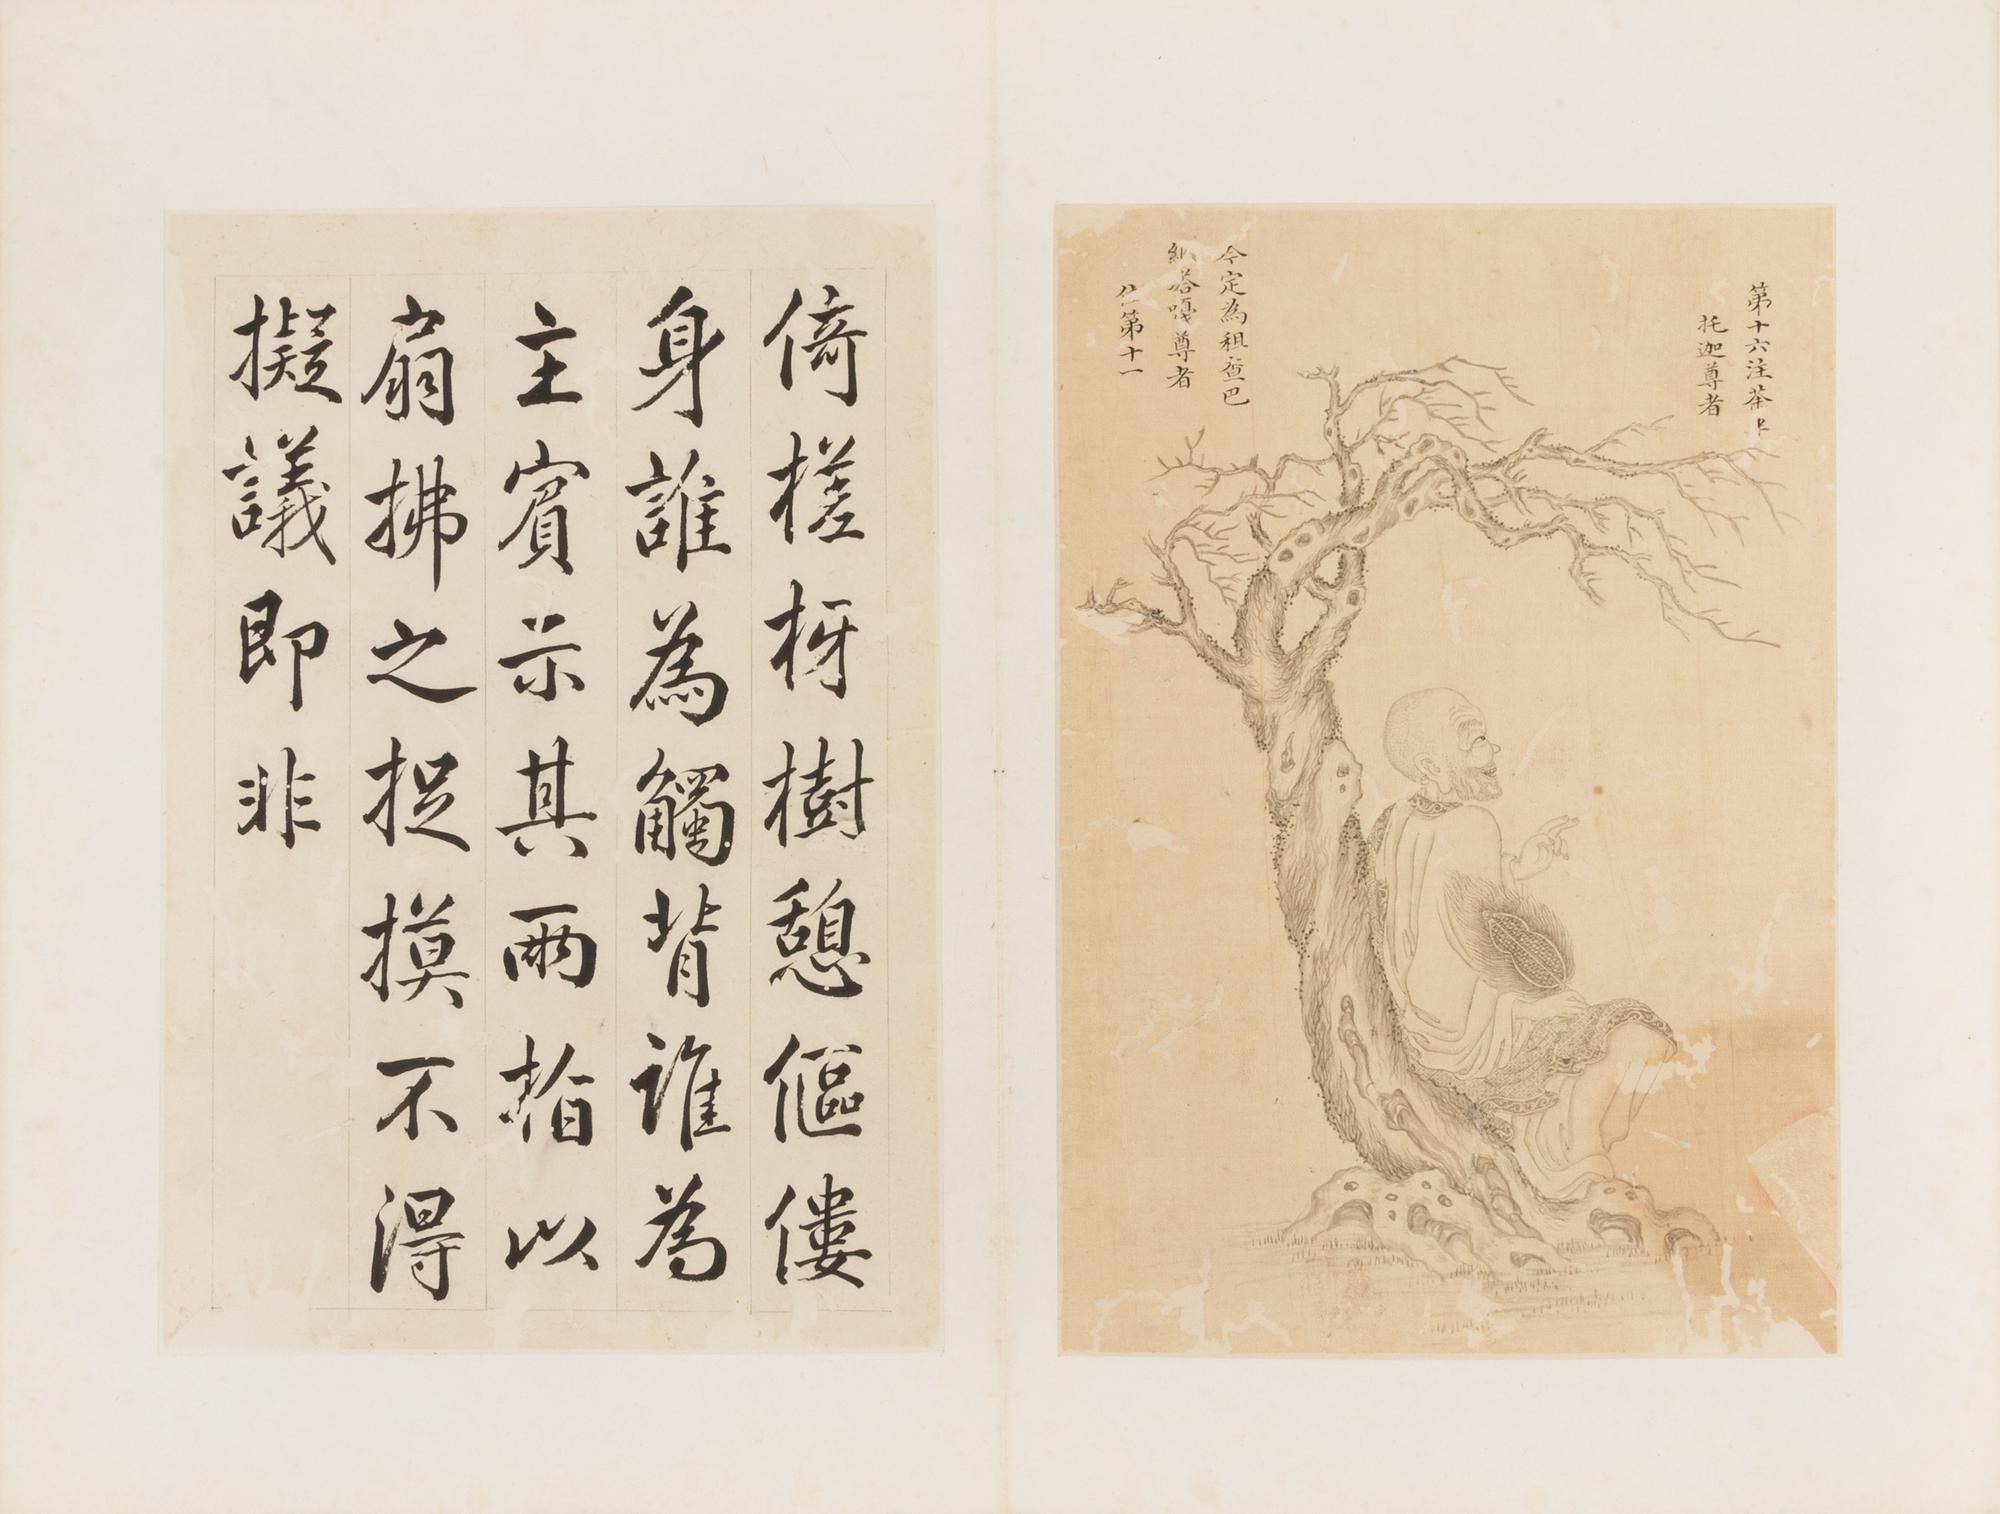 第十六注荼半
托迦尊者
今定為租查巴
納塔嘎尊者
位第十一
倚槎枒樹憩傴僂
身誰為觸背誰為
主賓示其兩指以
扇拂之捉摸不得
擬議即非